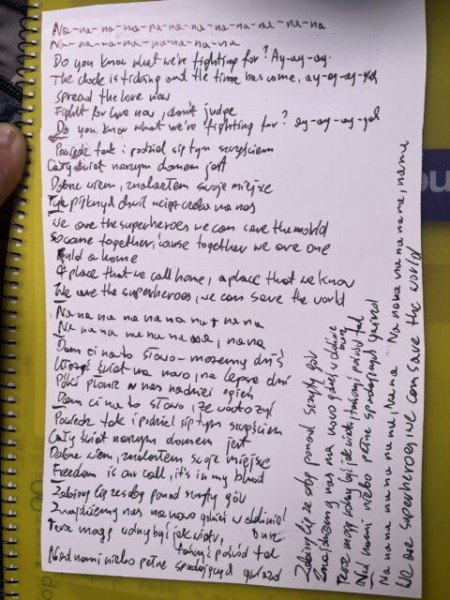 Na-na-na-na-na-na-na-na-na-na-na-na-na
Na-na-na-na-na-na-na-na
Do you know what we're fighting for? Ay-ay-ay.
The clock is ticking and the time has come, ay-ay-ay-yah
Spread the love now
Fight for love now, don't judge
Do you know what we're fighting for? ay-ay-ay-yah
Powiedz tak i podziel się tym szczęściem
Cały świat naszym domem jest
Dobrze wiem, znalazłem swoje miejsce
Tyle pięknych chwil wciąż czeka na nas
We are the superheroes we can save the world
So come together, 'cause together we are one
Build a home
A place that we call home, a place that we know
We are the superheroes, we can save the world
Na na na na na na na na na
Na na na na na na na, nana
Dam ci na to słowo - możemy dziś
świat na nowo, na lepsze dni
Póki płonie w nas nadziei ogień
Dam ci na to słowo, że warto żyć
Powiedz tak i podziel się tym szczęściem
Cały świat naszym domem jest
Dobrze wiem, znalazłem swoje miejsce
Freedom is our call, it's in my blood
Zabiorę Cię ze sobą ponad szczyty gór
Znajdziemy nas na nowo gdzieś w oddali
Teraz mogę wolny być jak wiatr,
tańczyć pośród fal
Nad nami niebo pełne spadających gwiazd
Zabiorę Cię ze sobą ponad szczyty gór
Znajdziemy nas na nowo gdzieś w oddali
Teraz mogę wolny być jak wiatr, tańczyć pośród fal
Nad nami niebo pełne spadających gwiazd
Na na na na na na na, na na Na na na na na na na, na na
We are superheroes, we can save the world
nu